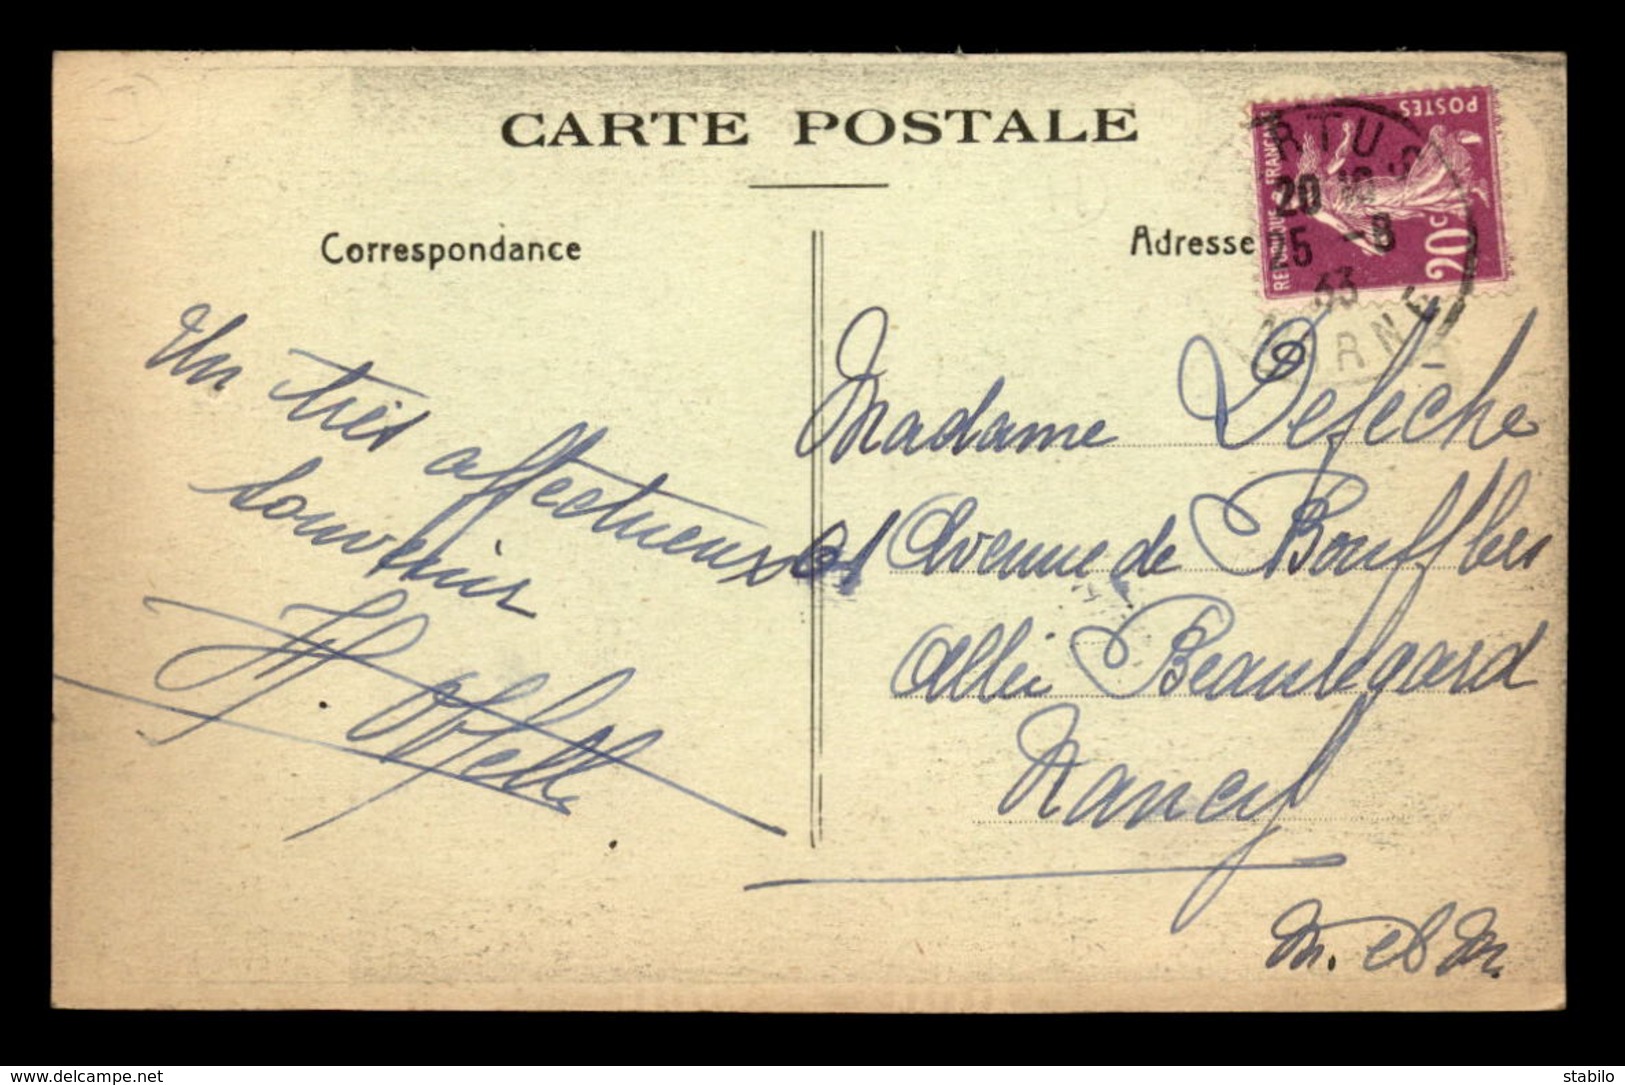 CARTE POSTALE
Correspondance
Adresse
POSTES
FRANÇAI
20c
RTUS
20 18
25 -8
33
RNE
Un très
affectueux
souvenir
H.
Madame Defèche
Avenue de Boufflers
allée Beauregard
Nancy
M. et M.
www.delcampe.net
stabilo